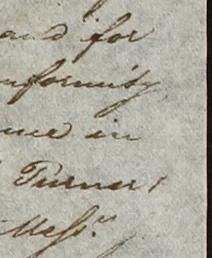 and for
nformity
me in
Turner,
Messrs